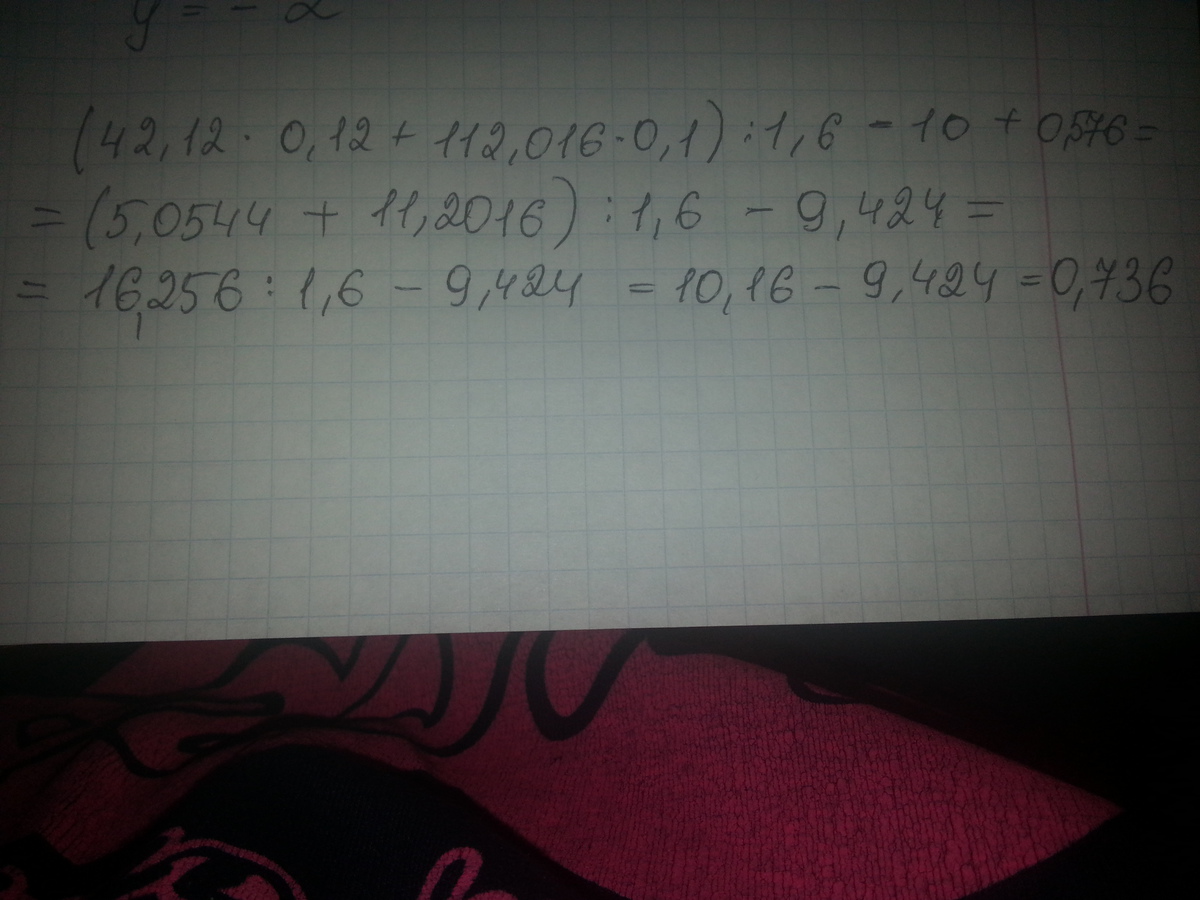 y = - 2
(42,12 · 0,12 + 112,016 · 0,1) : 1,6 - 10 + 0,576 =
= (5,0544 + 11,2016) : 1,6 - 9,424 =
= 16,256 : 1,6 - 9,424 = 10,16 - 9,424 = 0,736